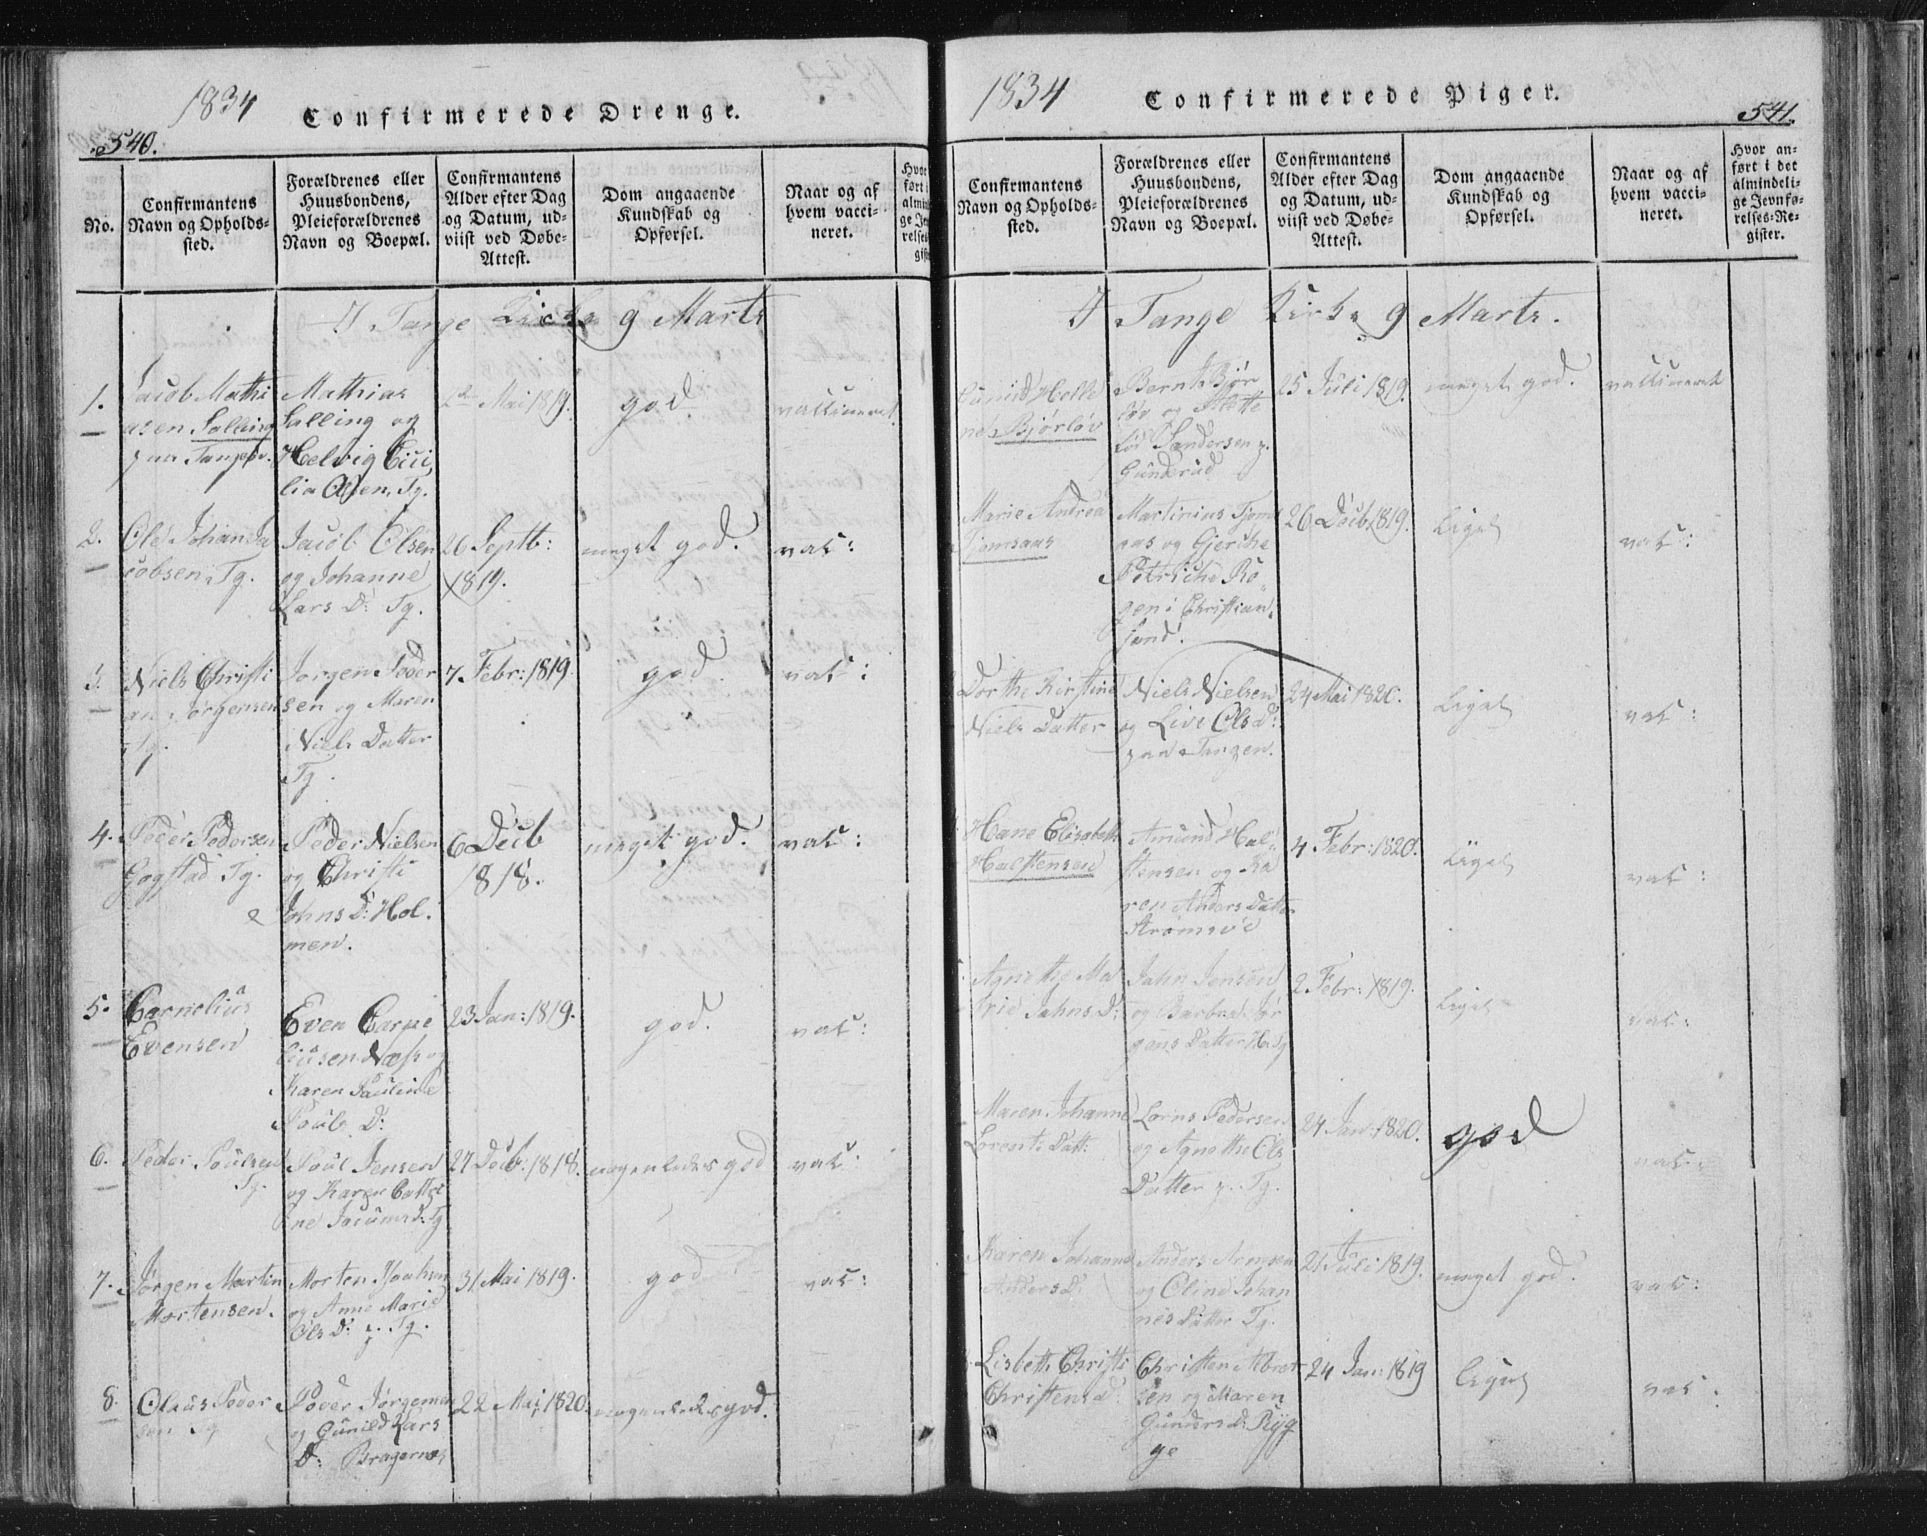 1834
Confirmerede Drenge.
540.
No.
Confirmantens
Navn og Opholds-
sted.
Forældrenes eller
Huusbondens,
Pleieforældrenes
Navn og Boepæl.
Confirmantens
Alder efter Dag
og Datum, ud-
viist ved Døbe-
Attest.
Dom angaaende
Kundskab og
Opførsel.
Naar og af
hvem vacci-
neret.
I Tange Kirke 9 Marts
1.
Jacob Mathi
asen Salling
paa Tangen.
Mathias
Salling og
Helvig Cici,
lia Olsen, Tg.
Mai 1819.
god.
vaccineret
2.
Ole Johan Ja
cobsen, Tg.
Jacob Olsen
og Johanne
Lars D: Tg.
26 Septb:
1819.
meget god.
vac:
3.
Niels Christi
an Jørgensen
Tg.
Jørgen Peder
sen og Maren
Niels Datter
Tg.
7 Febr: 1819.
god.
vac:
4.
Peder Pedersen
Gogstad Tg.
Peder Nielsen
og Christi
Johns D: Hol.
men.
6 Decb
1818.
meget god.
vac:
5.
Cornelius
Evensen
Even Corne
liusen Næss og
Karen Pauline
Pouls D:
23 Jan: 1819.
god.
vac:
6.
Peder Poulsen
Tg.
Poul Jensen
og Karen Cathri
ne D: Tg
27 Decb: 1818.
nogenledes god
vac:
7.
Jørgen Martin
Mortensen.
Morten
og Anne Marie
Ols D: p. Tg.
31 Mai 1819.
god
vac:
8.
Olaus Peder
sen Tg
Peder Jørgensen
og Gunild Lars
D: Bragernes
22 Mai 1820.
nogenledes god.
1834
Confirmerede Piger.
541.
Confirmantens
Navn og Opholds-
sted.
Forældrenes eller
Huusbondens,
Pleieforældrenes
Navn og Boepæl.
Confirmantens
Alder efter Dag
og Datum, ud-
viist ved Døbe-
Attest.
Dom angaaende
Kundskab og
Opførsel.
Naar og af
hvem vacci-
neret.
Hvor an-
ført i det
almindeli-
ge Jevnfø-
relses-Re-
gister.
I Tange Kirke 9 Marts.
Bjørløv
Bernt Bjør
løv og Mette
Sandersen p.
Gunderud
25 Juli 1819.
meget god.
vaccineret
Marie Andrea
Tjomsaas
Martinius Tjoms
aas og Gjerthe
Petriche Ro
gen i Christian
sand.
26 Decb 1819.
Liget
vac:
Dorthe Kirstine
Niels Datter
Niels Nielsen
og Live Ols D:
paa Tangen.
24 Mai 1820.
Liget
vac:
Hane Elisabeth
Halstensen
Amund Hal
stensen og Ka
ren Anders Datter
Strømsøe
4 Febr: 1820.
Liget
vac:
Agnethe Ma
trie Jahns D:
Jahn Jensen
og Barbra Jør
gens Datter
2 Febr: 1819.
Liget
vac:
Maren Johanne
Lorents Datt:
Lorns Pedersen
og Agnethe Ols
Datter p. Tg.
24 Jan: 1820.
god
vac:
Karen Johanne
Anders D:
Anders Arnesen
og Oline Johan
nes Datter Tg.
21 Juli 1819.
meget god.
vac:
Lisbeth Christi
Christens d.
Christen Albret
sen og Maren
Gunders D: Ryg
ge
24 Jan: 1819
liget
vac: